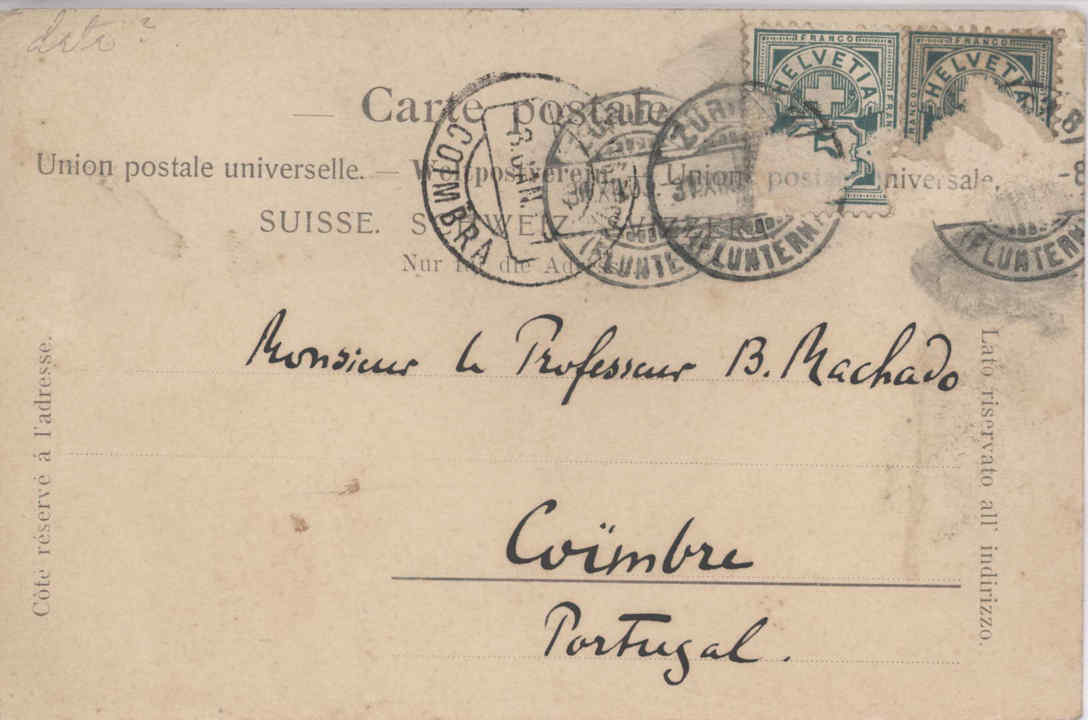 data?
Carte postale
Union postale universelle. — Weltpostverein. — Unione postale universale.
SUISSE. SCHWEIZ. SVIZZERA.
Nur für die Adresse
FRANCO
HELVETIA
FRANCO
HELVETIA
COIMBRA
ZÜRICH
(FLUNTERN)
ZÜRICH
31.XII
(FLUNTERN)
(FLUNTERN)
Monsieur le Professeur B. Machado
Coïmbre
Portugal.
Côté réservé á l'adresse.
Lato riservato all' indirizzo.